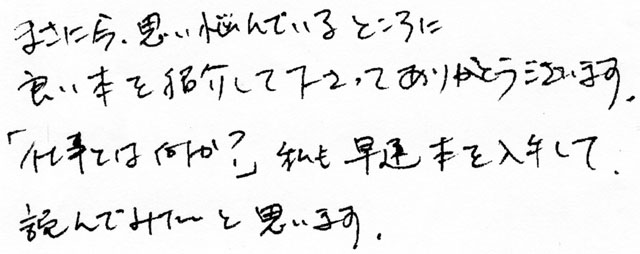 まさに今、思い悩んでいるところに
良い本を紹介して下さってありがとうございます。
「仕事とは何か？」私も早速本を入手して、
読んでみたいと思います。